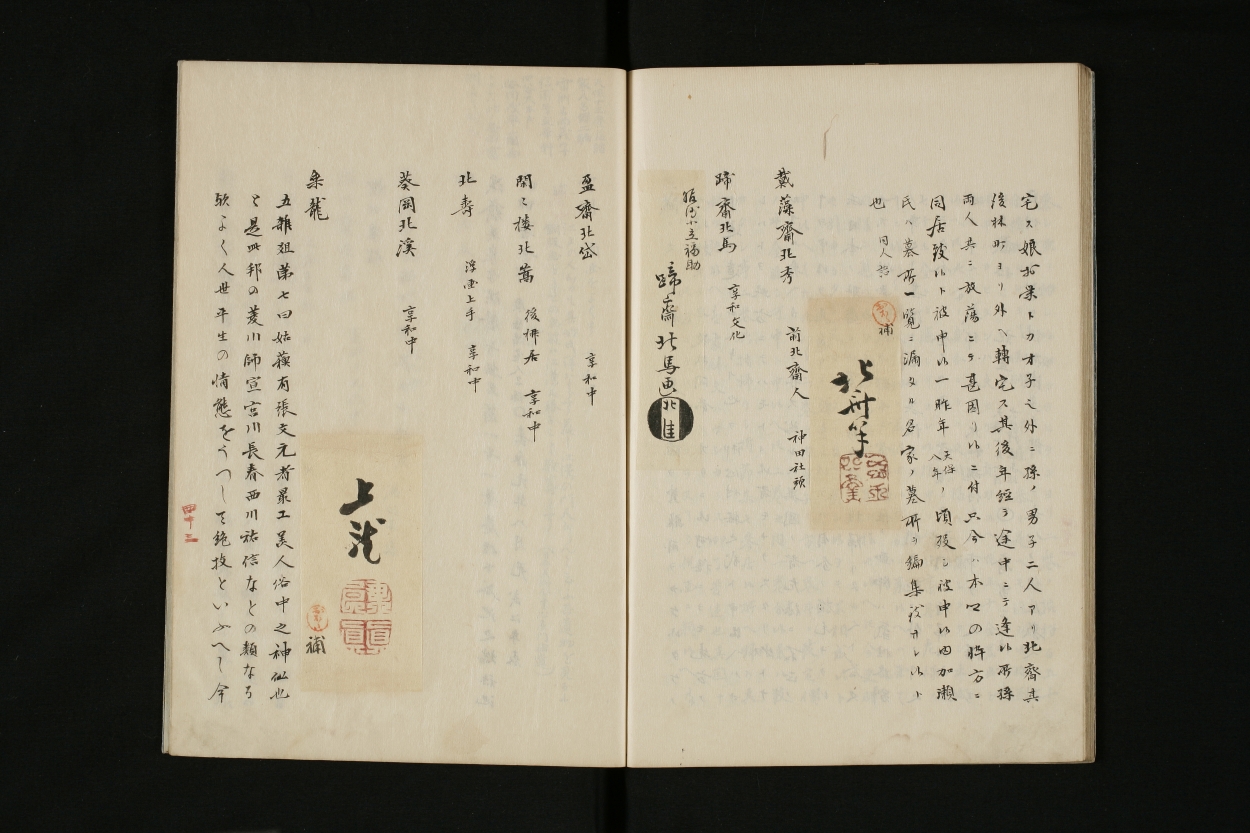 宅ス娘お栄トカオ子之外ニ孫ノ男子二人アリ北齋其
後林町ヨリ外ヘ轉宅ス其後年経テ途中ニテ逢候所孫
両人共ニ放蕩ニテ甚困り候ニ付只今ハ本所の辟方ニ
同居致候ト被申候一昨年天保八年ノ頃抜被申候由加瀬
氏ハ墓所一覧ニ漏タル名家ノ墓所ヲ編集
也 同人話
補
北舟筆
戴藻齋北秀 前北齋人 神田社頭
蹄齋北馬 享和文化
蹄齋北馬画
盈齋北岱 享和中
閑々楼北嵩 後柳居 享和中
北壽 浮画上手 享和中
葵岡北溪 享和中
乗龍
上龍
補
五雜俎第七曰姑蘇有張文元者最工美人俗中之神仙也
と是此邦の菱川師宣宮川長春西川祐信なとの類なら
歟よく人世平生の情態をうつして絶技といふへし今